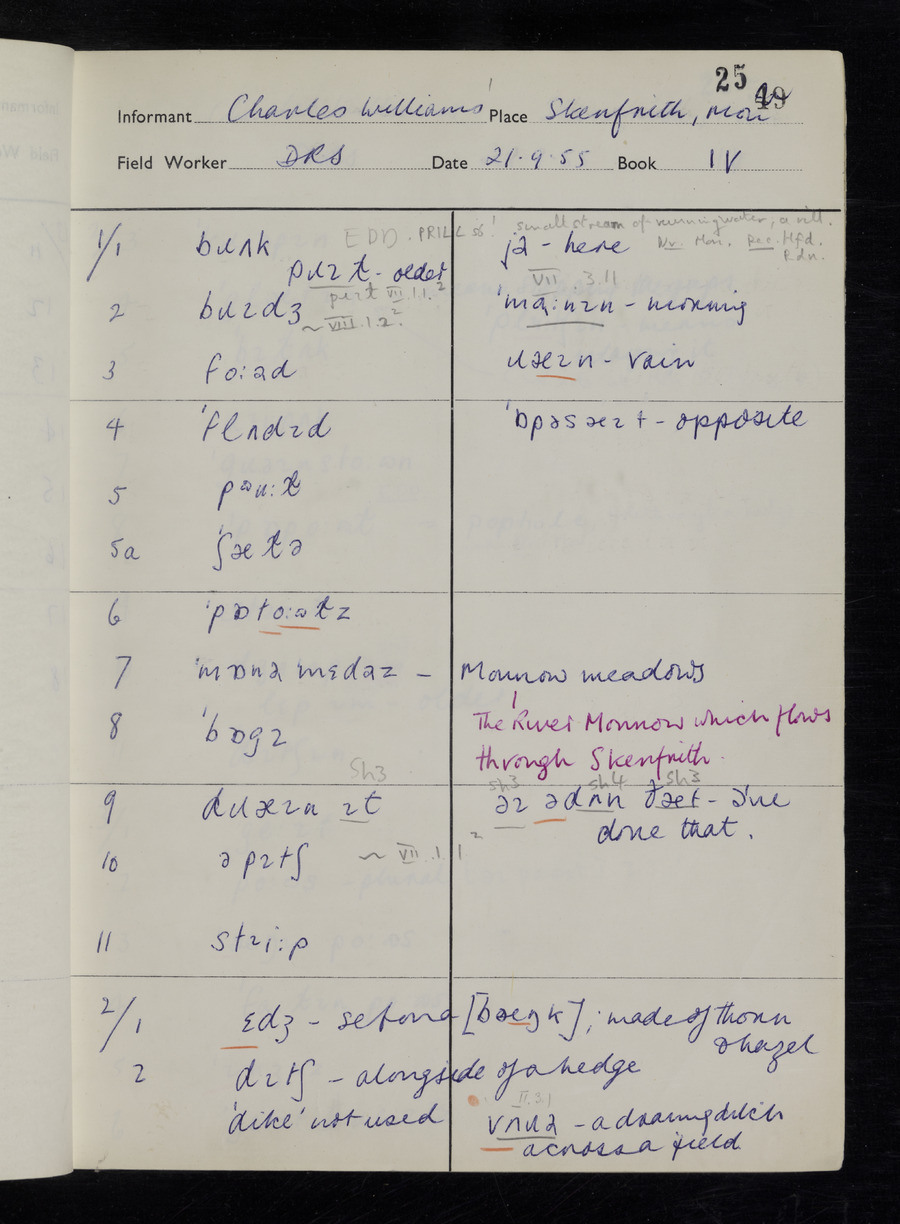 25
49
Informant Charles Williams Place Skenfrith, Mon
Field Worker DRS Date 21·9·55 Book IV
1/1 bɹʌk EDD. PRILL sb¹ small stream of running water; a rill.
jə - here Nr. Mon. Rec. Hfd. Rdn.
pɹɪt - older
VII 3.11
2 bɹɪdʒ pɹɪt VII.1.1.²
~ VIII.1.2.²
ˈmɑ:nɪn - morning
3 fo:əd ɹæɪn - rain
4 ˈflʌdɪd ˈɒpəsæɪt - opposite
5 pəɹ:t
5a ˈʃætə
6 ˈpɒto:ətz
7 ˈmɒnə ˈmɛdəz - Monnow meadows
8 ˈbɒgɪ The River Monnow which flows
through Skenfrith.
Sh3 sh3 sh4 sh3
9 dɹæɪn ɪt əɪ ədʌn ðæt - I've
done that.
10 ə pɪtʃ ~ VII.1.1²
11 stɹi:p
2/1 ɛdʒ - set on a [bæŋk]; made of thorn
& hazel
2 dɪtʃ - alongside of a hedge
II.3.1
'dike' not used vʌɹə - a draining ditch
across a field